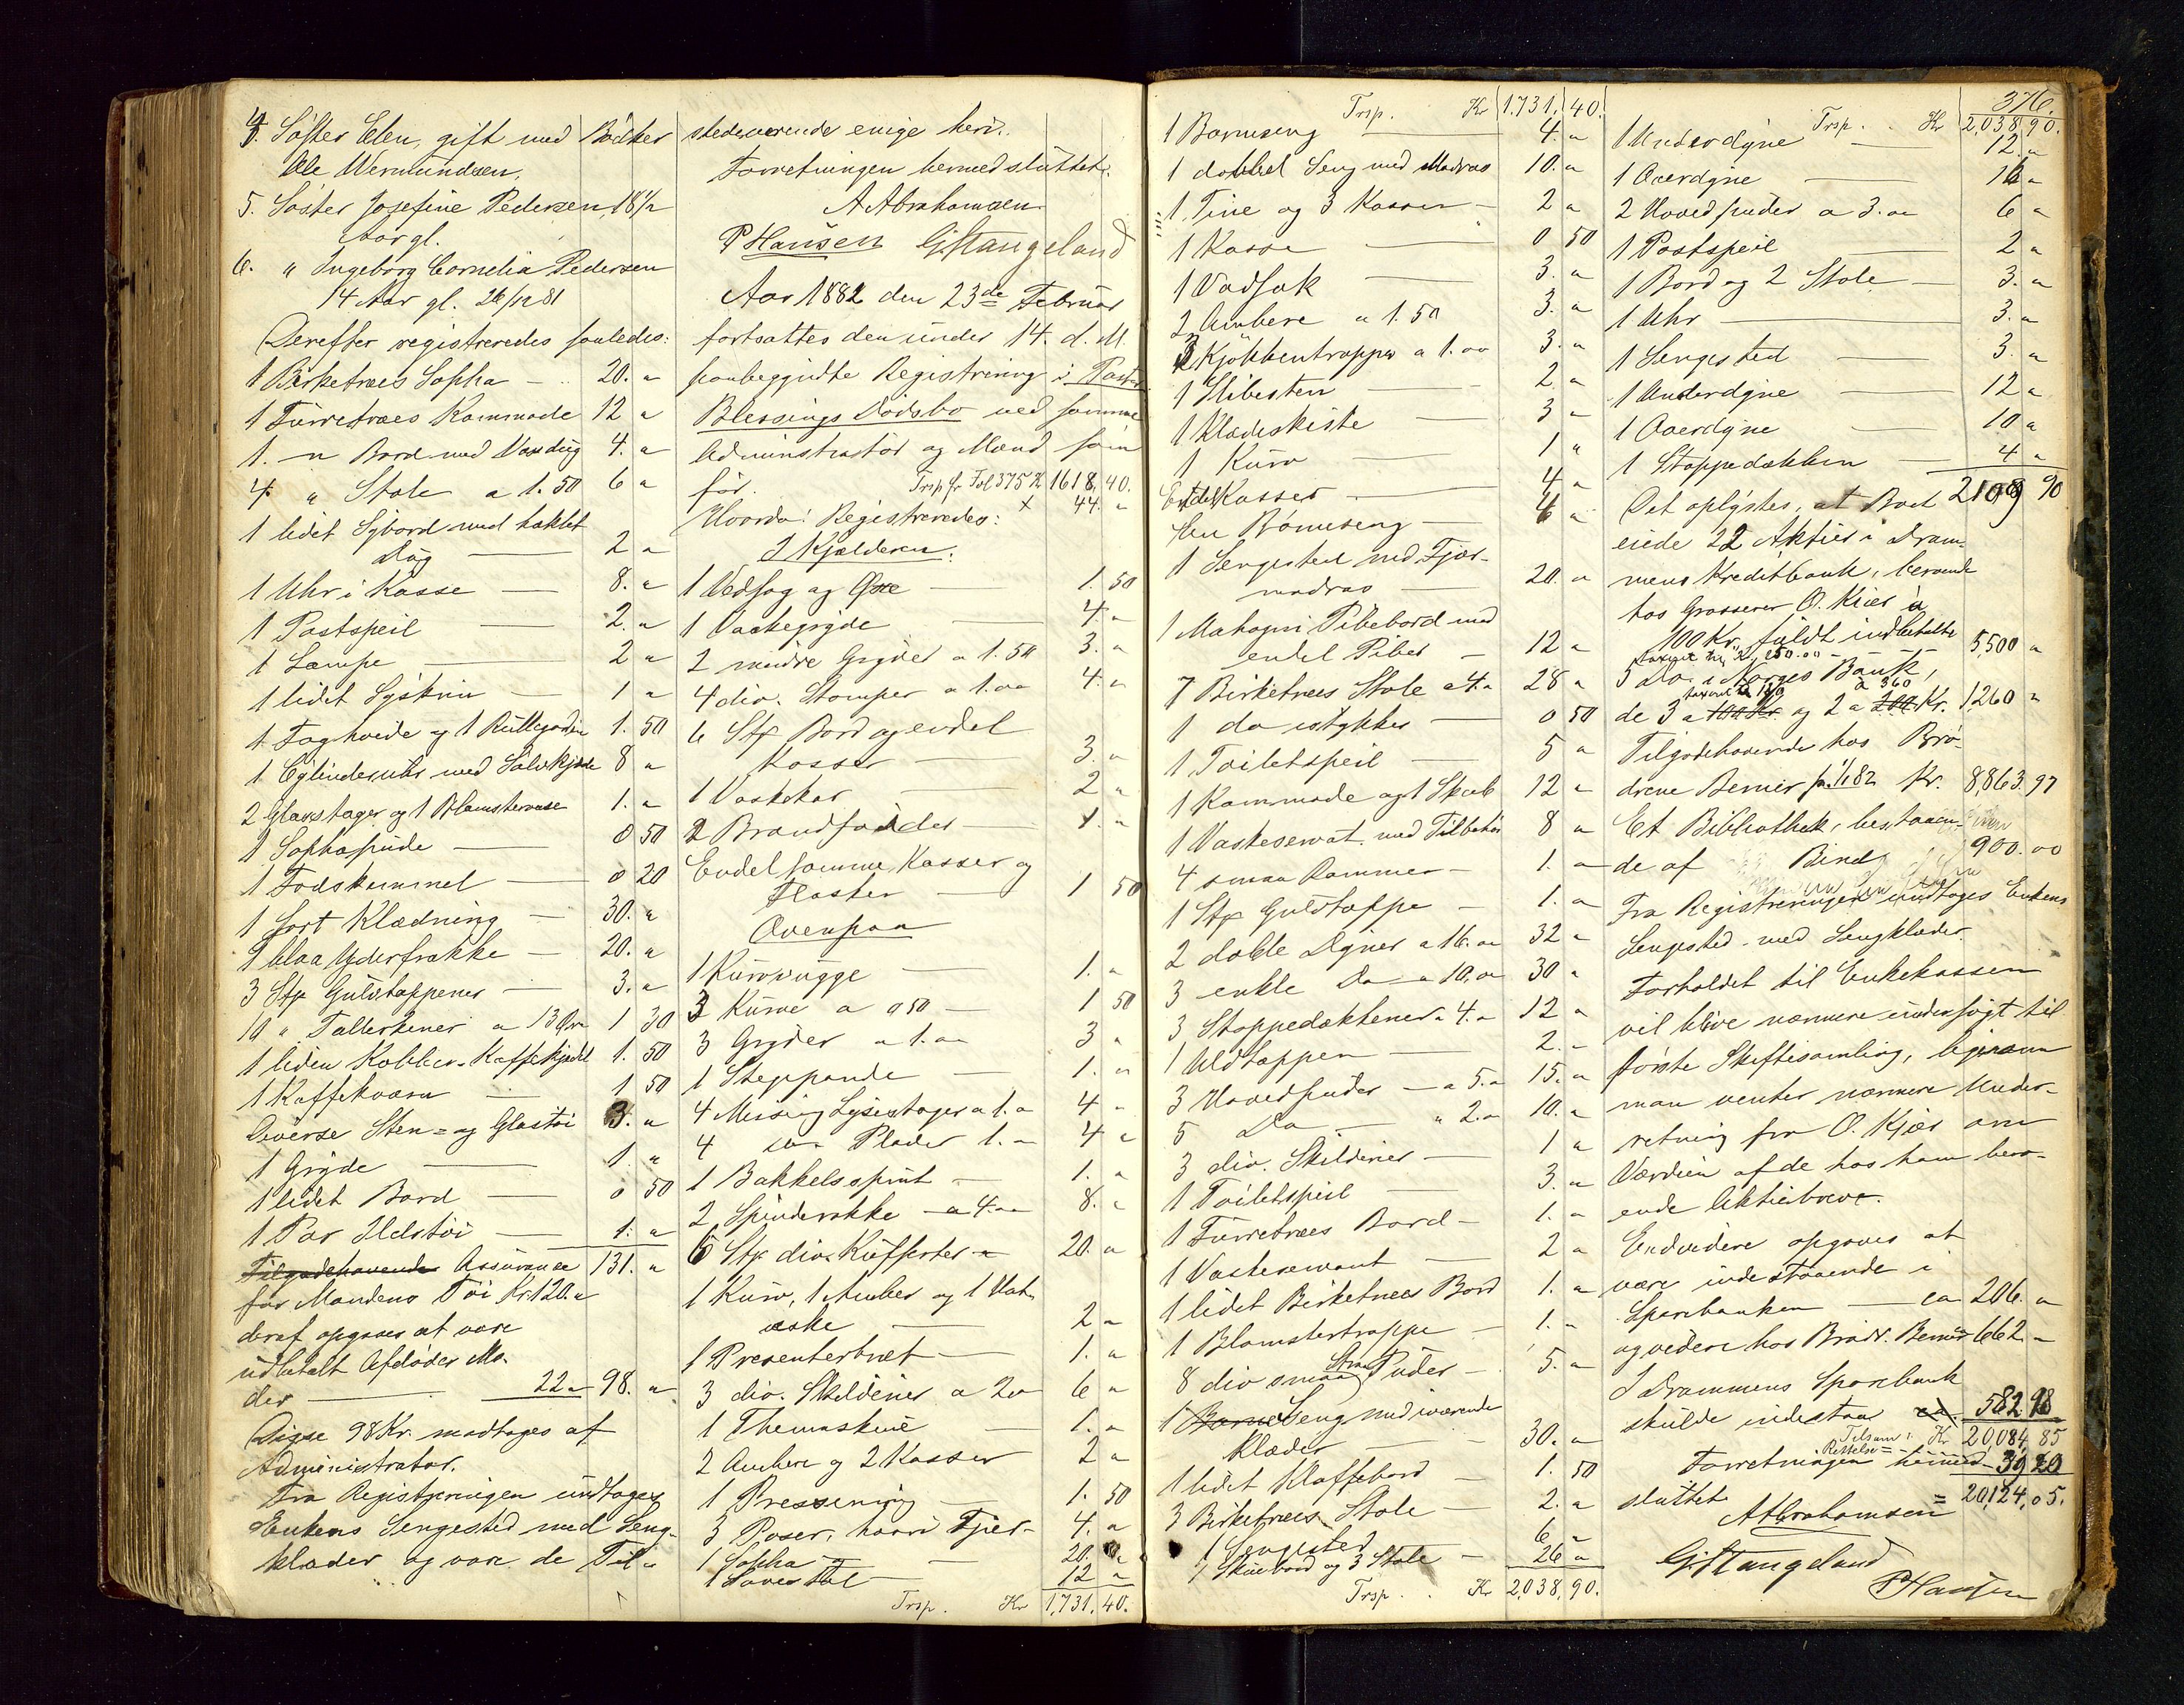 4. Søster Elen, gift med Bødker
Ole Wermundsen.
5. Søster Josefine Pedersen, 18 1/2
Aar gl.
6. " Ingeborg Cornelia Pedersen
14 Aar gl. 26/12 81
Derefter registreredes saaledes:
1 Birketræes Sopha - 20. "
1 Furretræes Kommode 12 "
1. - " Bord med Voxdug 4. "
4 " Stole a 1.50 6 "
1 lidet Sybord med hæklet
Dug 2 "
1 Uhr i Kasse 8. "
1 Postspeil 2. "
1 Lampe 2 "
1 lidet Syskrin 1 "
1 Toghvide og 1 Rullegardin 1. 50
1 Cylinderuhr med Sølvkjæde 8 "
2 Glasstager og 1 Blomstervase 1. "
1 Sophapude 0 50
1 Fodskammel 0 20
1 sort Klædning 30. "
1 blaa Yderfrakke 20. "
3 Stk Gulvtæpper 3. "
10 " Tallerkener a 13 Øre 1 30
1 liden Kobber-Kaffekjedel 1. 50
1 Kaffekværn 1 50
Diverse Sten- og Glastøi 3. "
1 Gryde 1. "
1 lidet Bord 0 50
1 Par Ildstøi 1. "
Tilgodehavende Assurance 131. "
for Mandens Tøi Kr. 120. "
deraf opgaves at være
udbetalt Afdødes Mo-
der 22 " 98. "
Disse 98 Kr. modtages af
Administrator.
Fra Registreringen undtoges
Enkens Sengested med Seng-
klæder og vare de Til-
stedeværende enige heri.
Forretningen hermed sluttet.
A Abrahamsen
P Hansen G Stangeland
Aar 1882 den 23de Februar
fortsattes den under 14. d. M.
paabegyndte Registrering i Pastor
Blessings Dødsbo ved samme
Administrator og Mænd som
før. Trsp fr Fol 375 Kr 1618, 40.
Hvorda! Registreredes: x 44. "
I Kjælderen.
1 Vedsag og Øxe 1. 50
1 Vaskegryde 4. "
2 mindre Gryder a 1.50 3. "
4 div. Stamper a 1.00 4. "
6 Stk Bord og endel
Kasser 3. "
1 Vaskekar 2 "
2 Brandspander 1. "
Endel tomme Kasser og
Flasker 1 50
Ovenpaa
1 Kurvvugge 1. "
3 Kurve a 0 50 1 50
3 Gryder a 1. " 3 "
1 Stegepande 1. "
4 Messing Lysestager a 1. " 4 "
4 Plader 1. " 4 "
1 Bakkelssprut 1. "
2 Spinderokke a 4. " 8. "
5 Stk div. Kufferter a 20. "
1 Kurv, 1 Amber og 1 Hat-
æske 2 "
1 Presenterbræt 1. "
3 div. Skilderier a 2 " 6 "
1 Themaskine 1. "
2 Ambere og 2 Kasser 2 "
1 Pressening 1. 50
3 Poser, hvori Fjer 4. "
1 Sopha 20. "
1 Lænestol 12 "
Trsp. Kr 1,731, 40.
Trsp. Kr 1,731, 40.
1 Barneseng 4. "
1 dobbel Seng med Madras 10. "
1 Tine og 3 Kasser 2 "
1 Kasse 0 50
1 Vadsæk 3. "
2 Ambere a 1.50 3. "
3 Kjøkkentrapper a 1.00 3. "
1 Slibesten 2. "
1 Klædeskiste 3 "
1 Kurv 1 "
Endel Kasser 4 "
En Barneseng 6 "
1 Sengested med Fjær-
madras 20. "
1 Mahogni Pibebord med
endel Piber 12 "
7 Birketræes Stole a 4. " 28 "
1 do istykker 0 50
1 Toiletspeil 5 "
1 Kommode og 1 Skab 12 "
1 Vaskeservat med Tilbehør 8 "
4 smaa Rammer 1. "
1 Stk Gulvtæppe 1. "
2 doble Dyner a 16. " 32 "
3 enkle Do a 10. " 30 "
3 Stoppedækkener a 4. " 12 "
1 Uldtæppen 2. "
3 Hovedpuder a 5. " 15. "
5 Do " 2. " 10. "
3 div. Skilderier 1 "
1 Toiletspeil 3. "
1 Furretræes Bord 1. "
1 Vaskeservant 2 "
1 lidet Birketræes Bord 1. "
1 Blomstertrappe 1. "
8 div smaa Puder 5. "
1 Barne Seng med iværende
Klæder 30. "
1 lidet Klaffebord 1. 50
3 Birketræes Stole 2. "
1 Sengested 6 "
1 Skrivebord og 3 Stole 26 "
Trsp. Kr 2,038, 90.
376.
Trsp. Kr 2,038, 90.
1 Underdyne 12. "
1 Overdyne 16 "
2 Hovedpuder a 3. " 6 "
1 Postspeil 2 "
1 Bord og 2 Stole 3. "
1 Uhr 3. "
1 Sengested 3. "
1 Underdyne 12 "
1 Overdyne 10 "
1 Stoppedækken 4 "
Det oplystes, at Boet 2109 90
eiede 22 Aktier i Dram-
mens Kreditbank, beroende
hos Grosserer O. Kiær a
100 Kr. fuldt indbetalte
taxeret til Kr. 250.00 5,500 "
5 Do. i Norges Bank,
taxeret a 180 a 360
de 3 a 100 Kr. og 2 a 200 Kr. 1,260 "
Tilgodehavende hos Brø-
drene Bernier pr. 1/1 82 Kr. 8,863. 97
Et Bibliothek, bestaaen-
de af Bind 900. 00
Fra Registreringen undtages Enkens
Sengested med Sengklæder.
Forholdet til Enkekassen
vil blive nærmere undersøgt til
første Skiftesamling, ligesom
man venter nærmere Under-
retning fra O. Kjær om
Værdien af de hos ham bero-
ende Aktiebreve.
Endvidere opgaves at
være indestaaende i
Sparebanken ca 206. "
og videre hos Brødr. Bernier 662 "
I Drammens Sparebank
skulde indestaa ca. 582. 98
Tilsam: Kr 20,084, 85
Rettelse = 39 20
Forretningen hermed
sluttet. = 20,124, 05.
A Abrahamsen
G Stangeland
P Hansen